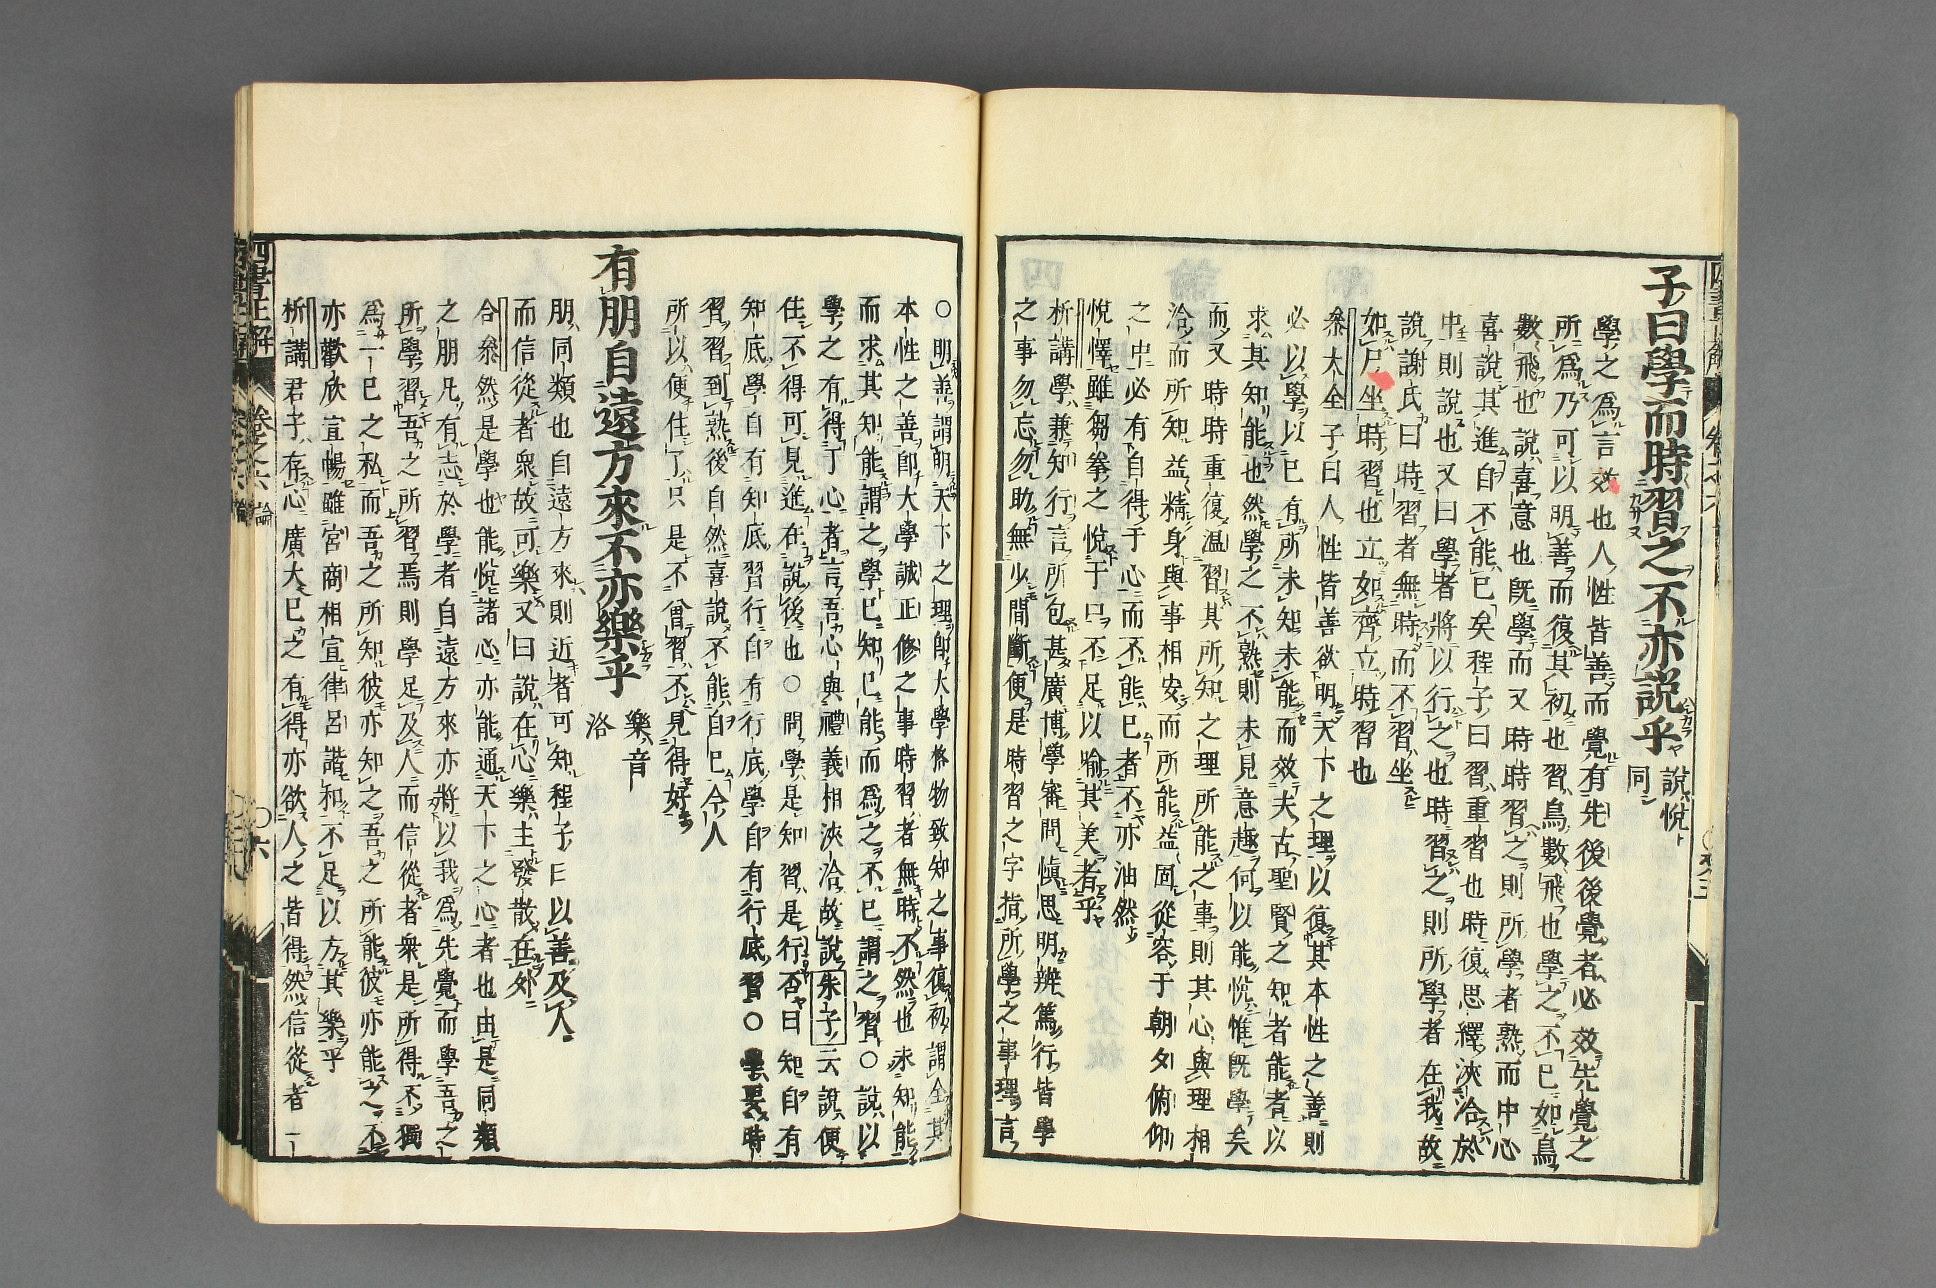 子曰學而時習之不亦説乎
説悅
同
學之爲言效也人性皆善而覺有先後後覺者必效先覺之
所爲乃可以明善而復其初也習鳥數飛也學之不已如鳥
數飛也説喜意也既學而又時時習之則所學者熟而中心
喜説其進自不能已矣程子曰習重習也時復思繹浹洽於
中則説也又曰學者將以行之也時習之則所學者在我故
説謝氏曰時習者無時而不習坐
如尸坐時習也立如齊立時習也
叅大全子曰人性皆善欲明天下之理以復其本性之善則
必以學以已有所未知未能而效夫古聖賢之知者能者以
求其知能也然學之不熟則未見意趣何以能悦惟既學矣
而又時時重復温習其所知之理所能之事則其心與理相
洽而所知益精身與事相安而所能益固從容于朝夕俯仰
之中必有自得于心而不能已者不亦油然
悅懌雖芻拳之悅于口不足以喻其美者乎
析講學兼知行言所包甚廣博學審問愼思明辨篤行皆學
之事勿忘勿助無少間斷便是時習之字指所學之事理言
○明善謂明天下之理卽大學格物致知之事復初謂全其
本性之善卽大學誠正修之事時習者無時不然也未知能
而求其知能謂之學已知已能而爲之不已謂之習○説以
學之有得于心者言吾心與禮義相浹洽故説朱子云説便
住不得可見進在説後也○問學是知習是行否曰知自有
知底學自有知底習行自有行底學自有行底習○學要時
習習到熟後自然喜説不能自已今人
所以便住了只是不曾習不見得好
有朋自遠方來不亦樂乎
樂音
洛
朋同類也自遠方來則近者可知程子曰以善及人
而信從者衆故可樂又曰説在心樂主發散在外
合叅然是學也能悅諸心亦能通天下之心者也由是同類
之朋凡有志於學者自遠方來亦將以我爲先覺而學吾之
所學習吾之所習焉則學足及人而信從者衆是所得不獨
爲一已之私而吾之所知彼亦知之吾之所能彼亦能之不
亦歡欣宣暢雖宮商相宣律呂諧和不足以方其樂乎
析講君子存心廣大已之有得亦欲人之皆得然信從者一
四書正解
卷之六
論
○六